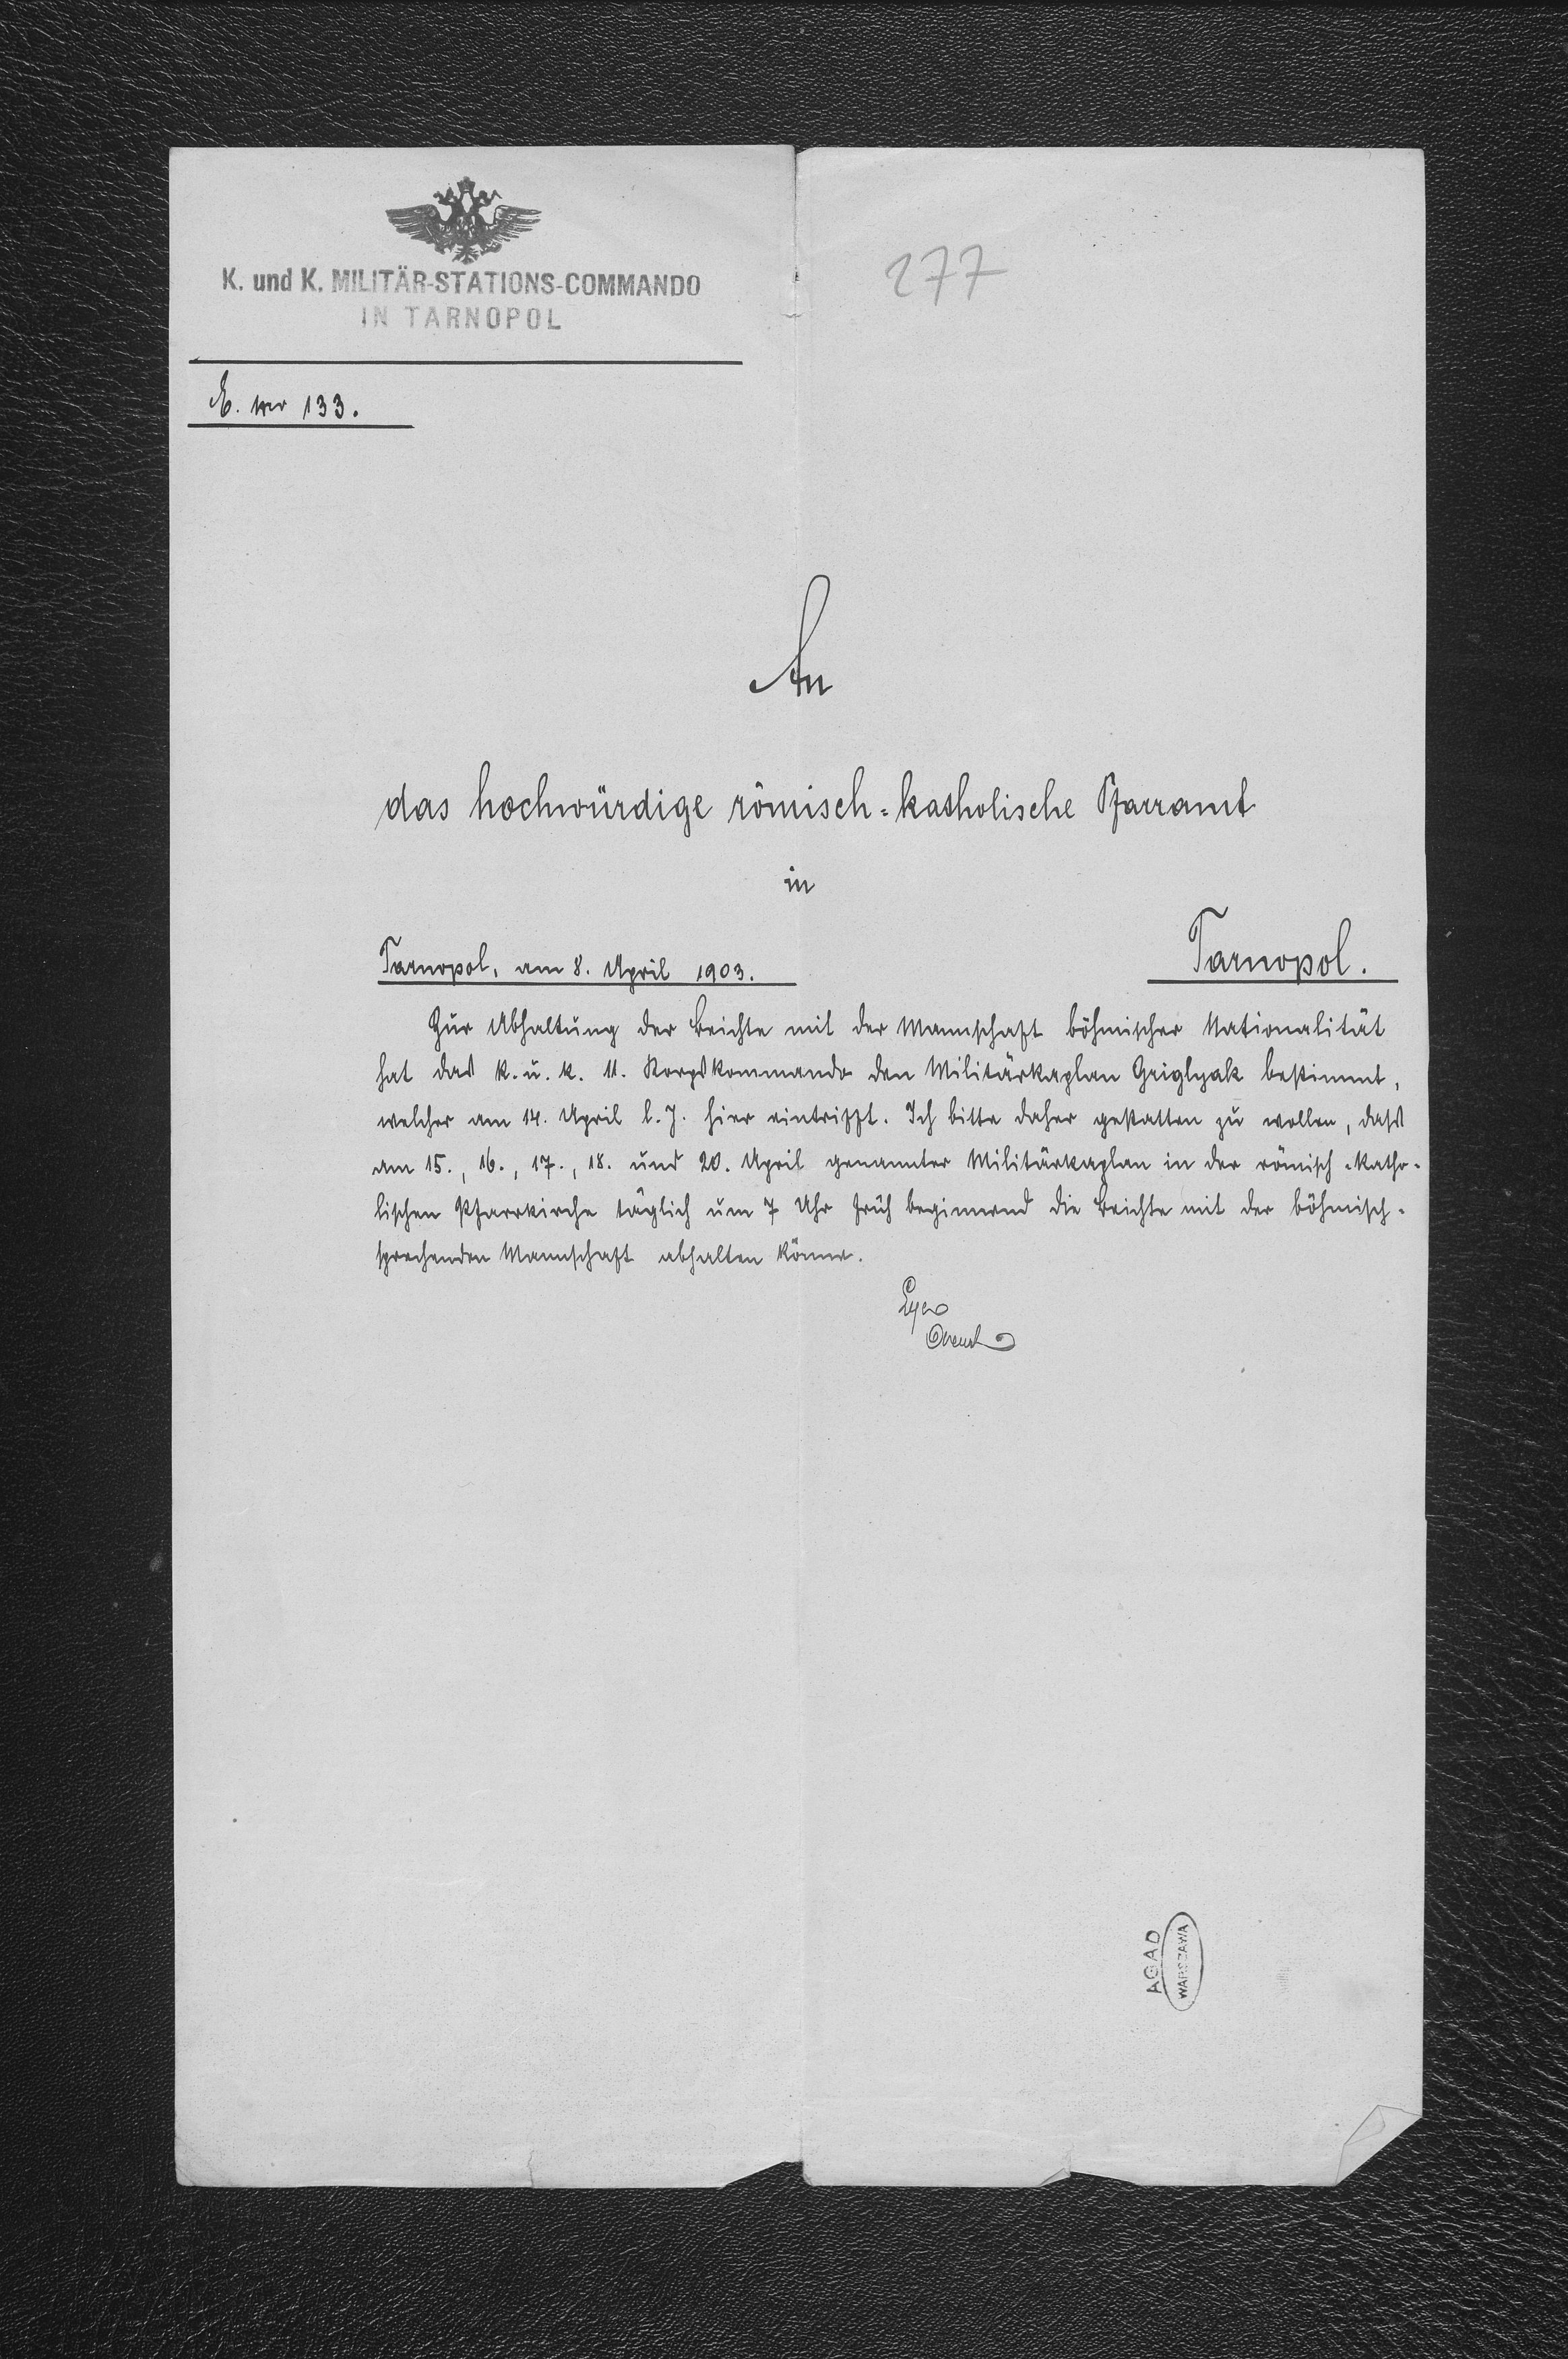 K. und K. MILITÄR-STATIONS-COMMANDO
IN TARNOPOL
277
E. No 133.
An
das hochwürdige römisch-katholische Pfarramt
in
Tarnopol.
Tarnopol, am 8. April 1903.
Zur Abhaltung der Beichte mit der Mannschaft böhmischer Nationalität
hat das k. u. k. 11. Korpskommando den Militärkaplan Griglyak bestimmt,
welcher am 14. April l. J. hier eintrifft. Ich bitte daher gestatten zu wollen, dass
am 15., 16., 17., 18. und 20. April genannter Militärkaplan in der römisch-katho-
lischen Pfarrkirche täglich um 7 Uhr früh beginnend die Beichte mit der böhmisch-
sprechenden Mannschaft abhalten könne.
Oberst
AGAD
WARSZAWA